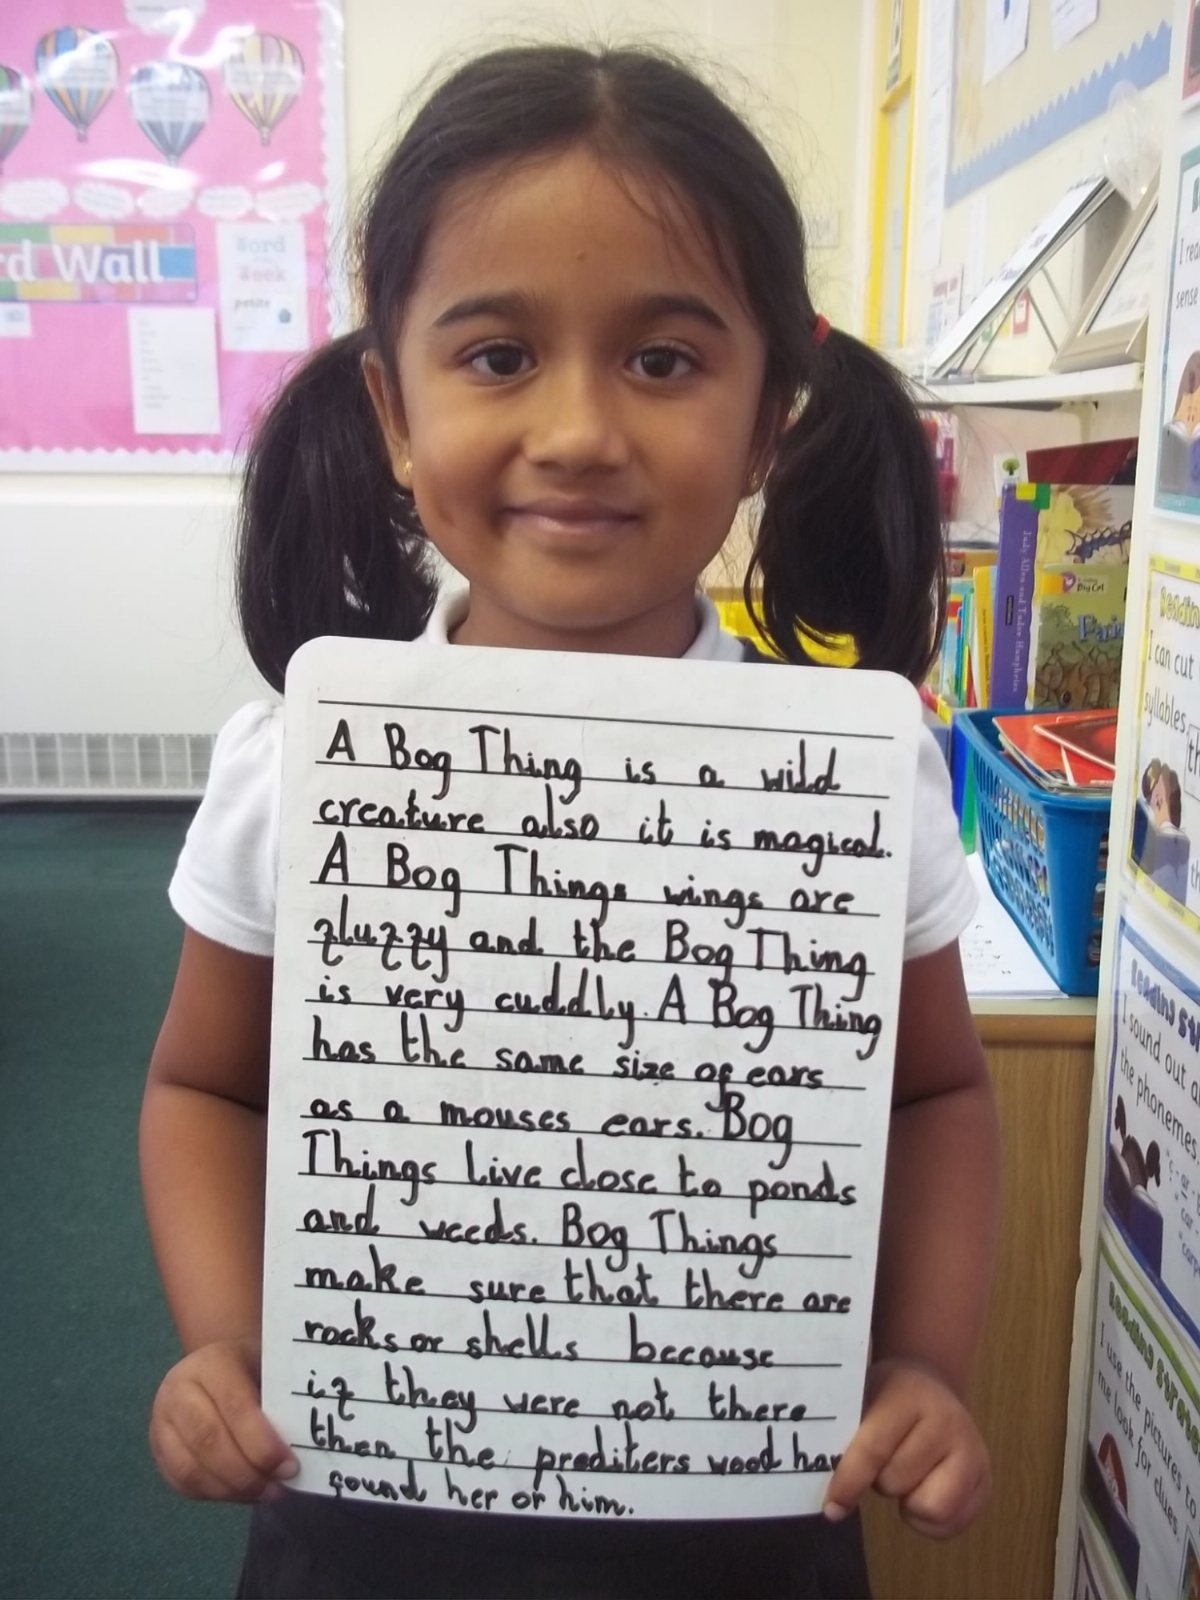 A Bog Thing is a wild
creature also it is magical.
A Bog Things wings are
fluffy and the Bog Thing
is very cuddly. A Bog Thing
has the same size of ears
as a mouses ears. Bog
Things live close to ponds
and weeds. Bog Things
make sure that there are
rocks or shells because
if they were not there
then the prediters wood hav
found her or him.
rd Wall
Word
Seek
petite
Judy Allen and Tudor Humphries
Big Cat
Fair
I rea
sense
Reading
I can cut
syllables,
th
Reading Str
I sound out a
the phonemes,
Reading Strate
I use the pictures to
me look for clues.